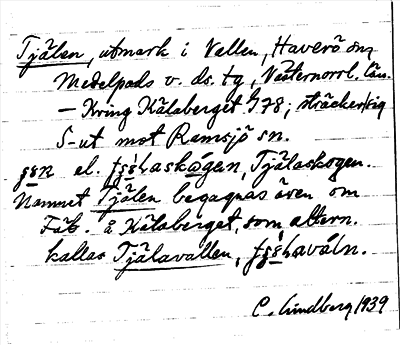 Tjälen, utmark i Vallen, Haverö sn,
Medelpads v. ds. tg, Västernorrl. län.
— Kring Kälaberget G78; sträcker sig
S-ut mot Ramsjö sn.
el. Tjälaskogen.
Namnet Tjälen begagnas även om
Fäb. å Kälaberget, som altern.
kallas Tjälavallen,
C. Lindberg 1939